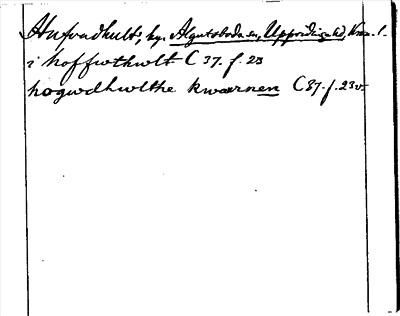 Hufvudhult, by. Algutsboda sn, Uppvidinge hd, Kron. l.
i hoffwthwlt C 37. f. 23
hogwdhwlthe kwærnen C 37. f. 23v.